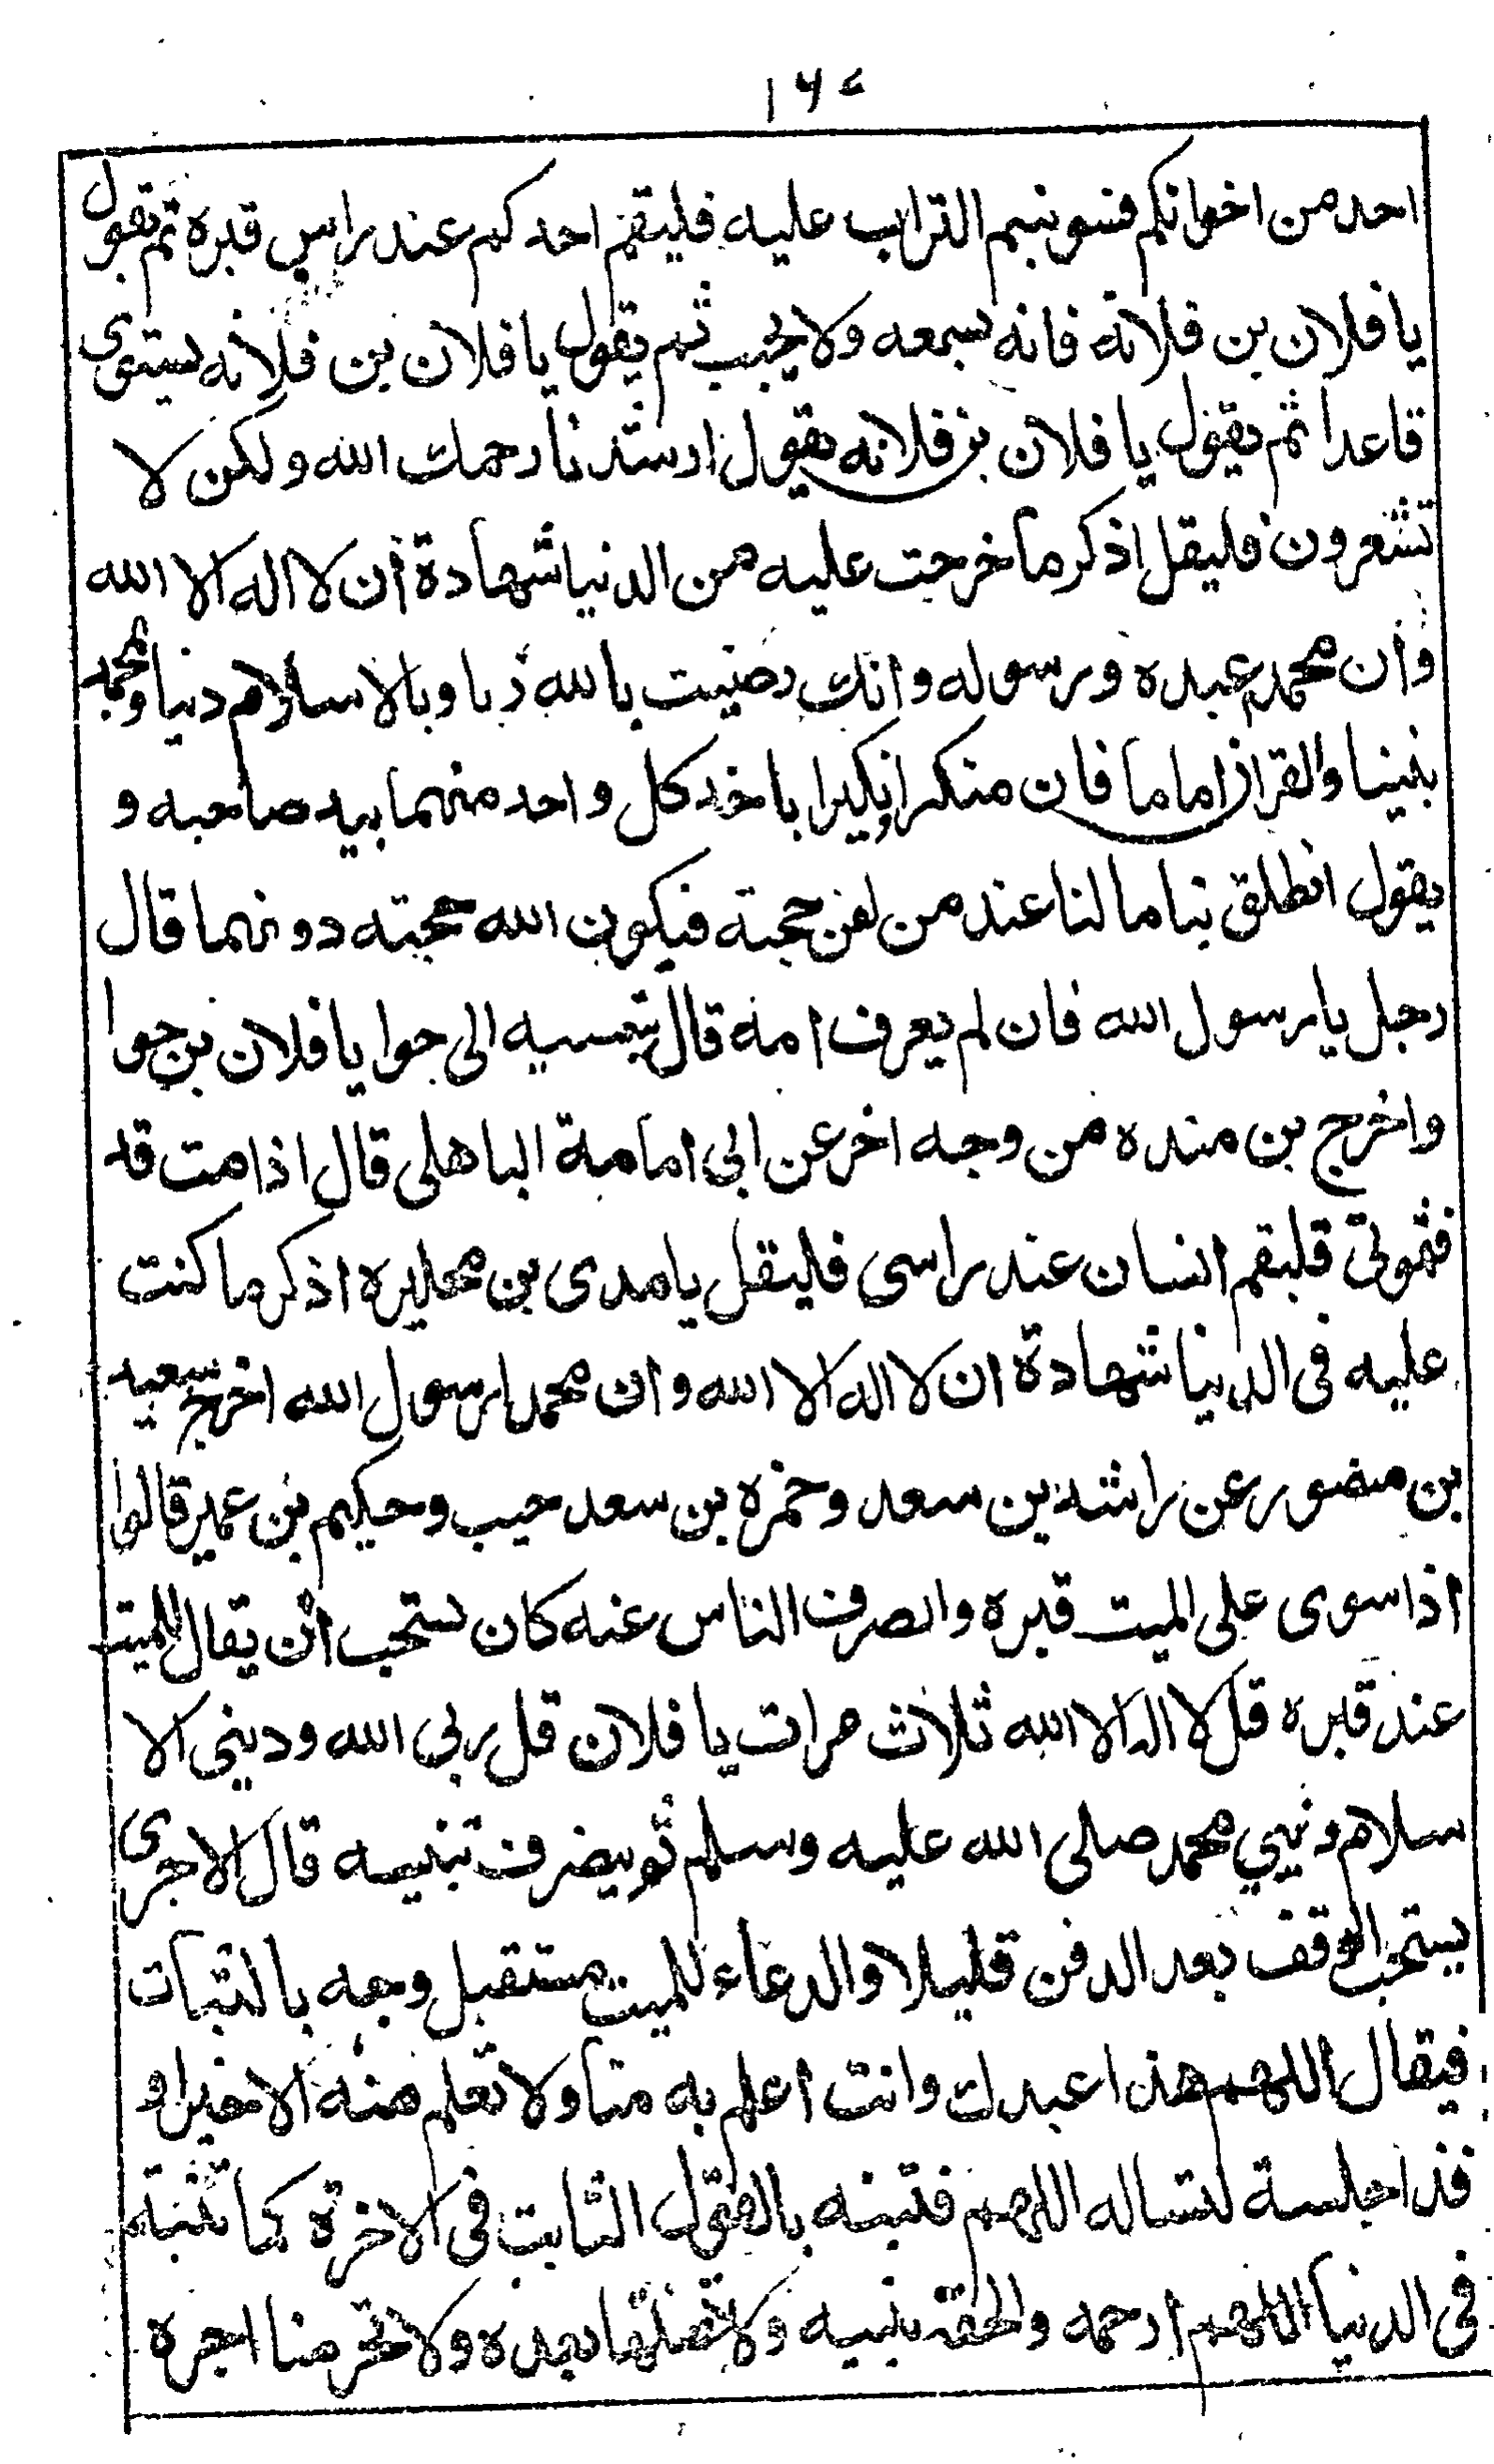 ١٦٤
احد من اخوانكم فسويتم التراب عليه فليقم احدكم عند راس قبره ثم يقول
يا فلان بن فلانة فانه يسمعه ولا يجيب ثم يقول يا فلان بن فلانه يستوى
قاعدا ثم يقول يا فلان بن فلانه يقول ارشدنا رحمك الله ولكن لا
تشعرون فليقل اذكر ما خرجت عليه من الدنيا شهادة أن لا اله الا الله
وأن محمد عبده ورسوله وانك رضيت بالله ربا وبالاسلام دينا وبمحمد
نبينا والقران اماما فان منكرا ونكيرا ياخد كل واحد منهما بيد صاحبه و
يقول انطلق بنا ما لنا عند من لقن حجته فيكون الله حجته دونهما قال
رجل يا رسول الله فان لم يعرف امه قال ينسبه الى حوا يا فلان بن حوا
واخرج بن منده من وجه اخر عن ابى امامة الباهلى قال اذا مت قد
فثمونى فليقم انسان عند راسى فليقل يا صدى بن عجلان اذكر ما كنت
عليه فى الدنيا شهادة ان لا اله الا الله وان محمدا رسول الله اخرج سعيد
بن منصور عن راشد بن سعد وحمزه بن سعد حيب وحكيم بن عمير قالوا
اذا سوى على الميت قبره وانصرف الناس عنه كان يستحب أن يقال للميت
عند قبره قل لا اله الا الله ثلاث مرات يا فلان قل ربى الله ودينى الا
سلام ونبيي محمد صلى الله عليه وسلم ثم ينصرف تنبيه قال الاجرى
يستحب الوقف بعد الدفن قليلا والدعاء للميت مستقبل وجهه بالثبات
فيقال اللهم هذا عبدك وانت اعلم به منا ولا نعلم منه الا خيرا و
قد اجلسة لتساله اللهم فثبته بالقول الثابت فى الاخرة كما تثبته
فى الدنيا اللهم ارحمه والحقه بنبيه ولا تضلنا بعده ولا تحرمنا اجره